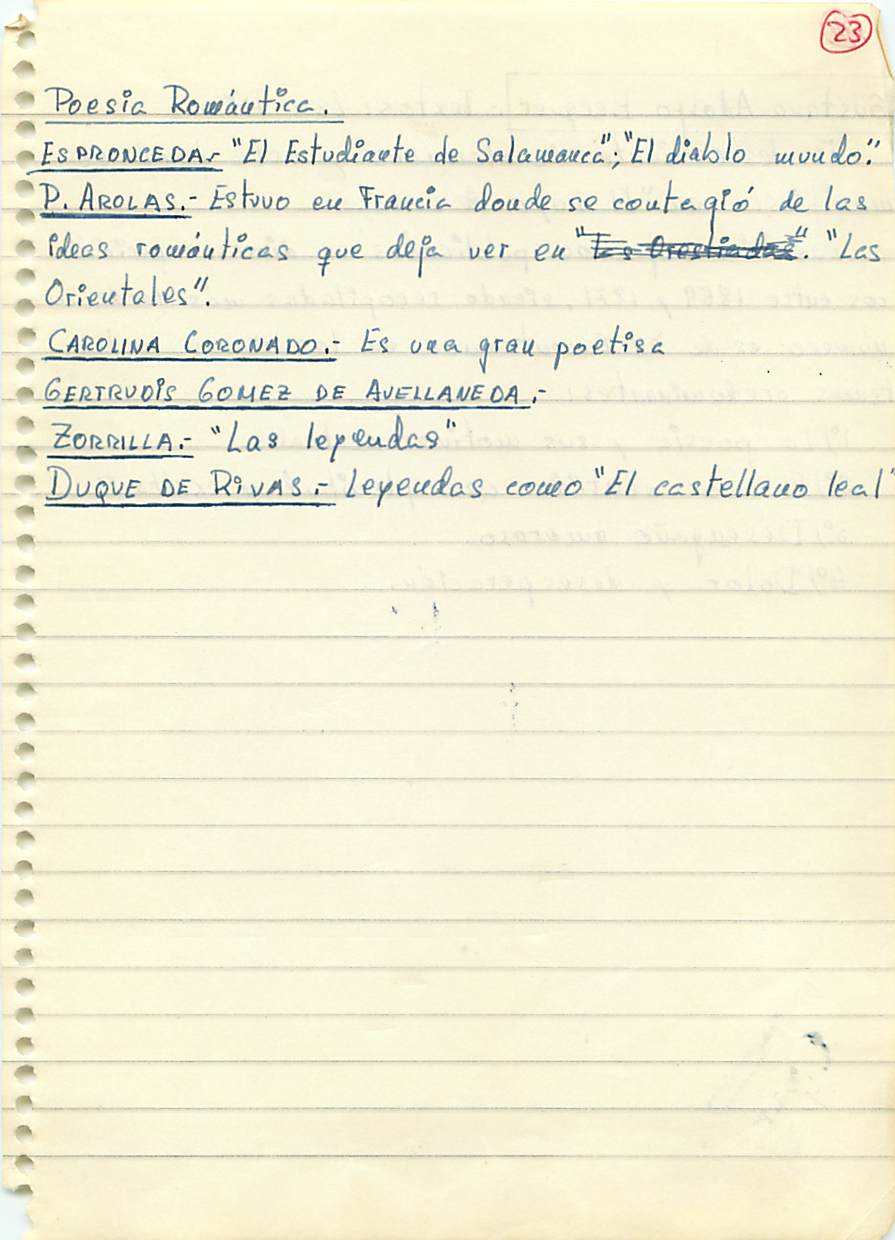 23
Poesía Romántica.
ESPRONCEDA.- "El Estudiante de Salamanca"; "El diablo mundo".
P. AROLAS.- Estuvo en Francia donde se contagió de las
ideas románticas que deja ver en "Las Orestiadas". "Las
Orientales".
CAROLINA CORONADO.- Es una gran poetisa
GERTRUDIS GOMEZ DE AVELLANEDA.-
ZORRILLA.- "Las leyendas"
DUQUE DE RIVAS.- Leyendas como "El castellano leal"